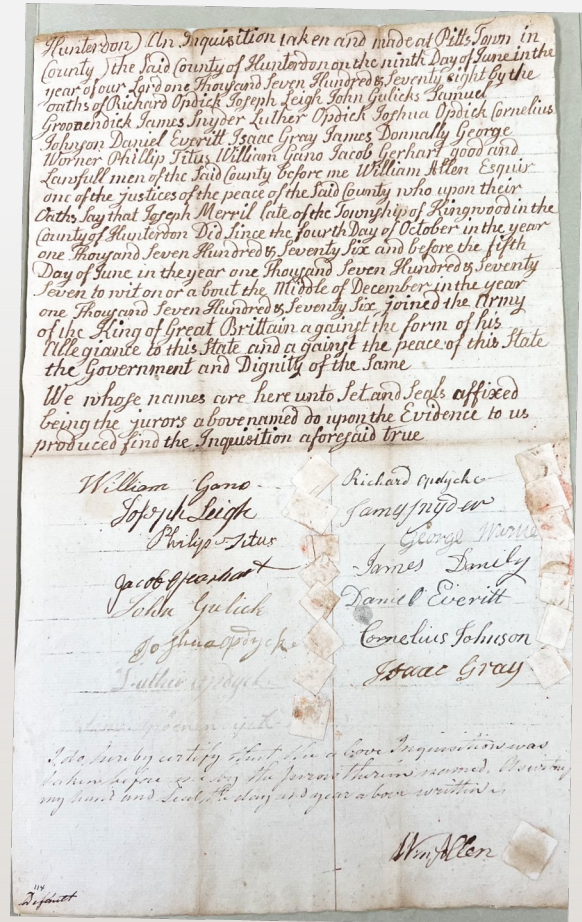 Hunterdon) An Inquisition taken and made at Pitts Town in
County ) the Said County of Hunterdon on the ninth Day of June in the
year of our Lord one Thousand Seven Hundred & Seventy eight by the
oaths of Richard Opdick Joseph Leigh John Gulicks Samuel
Groonendick James Snyder Luther Opdick Joshua Opdick Cornelius
Johnson Daniel Everitt Isaac Gray James Donnally George
Worner Phillip Titus William Gano Jacob Gerhart good and
Lawfull men of the Said County before me William Allen Esquir
one of the justices of the peace of the Said County who upon their
Oaths Say that Joseph Merril late of the Township of Kingwood in the
County of Hunterdon Did Since the fourth Day of October in the year
one Thousand Seven Hundred & Seventy Six and before the fifth
Day of June in the year one Thousand Seven Hundred & Seventy
Seven to wit on or a bout the Middle of December in the year
one Thousand Seven Hundred & Seventy Six joined the Army
of the King of Great Brittain a gainst the form of his
Allegiance to this State and a gainst the peace of this State
the Government and Dignity of the Same
We whose names are here unto Set and Seals affixed
being the jurors above named do upon the Evidence to us
produced find the Inquisition aforesaid true
William Gano
Joseph Leigh
Philip Titus
Jacob Gearhart
John Gulick
Joshua Opdycke
Luther Opdyck
Richard Opdycke
James Snyder
George
James Danily
Daniel Everitt
Cornelius Johnson
Isaac Gray
I do hereby certify that the above Inquisition was
taken before me by the jurors therein named. As witness
my hand and Seal, the day and year above written
Wm Allen
114